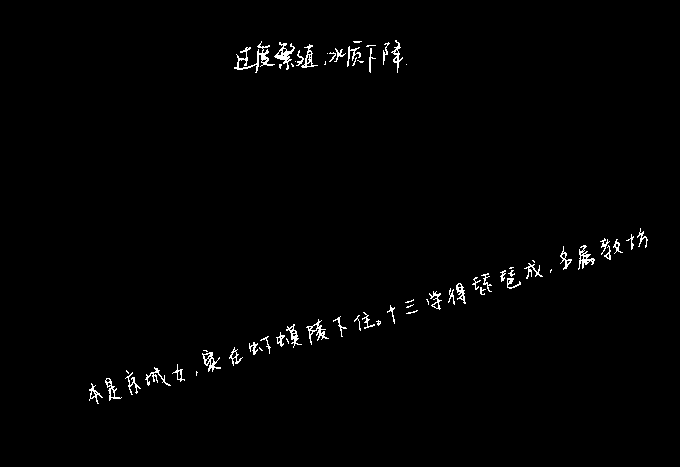 过度繁殖,水质下降.
本是京城女,家在虾蟆陵下住。十三学得琵琶成,名属教坊